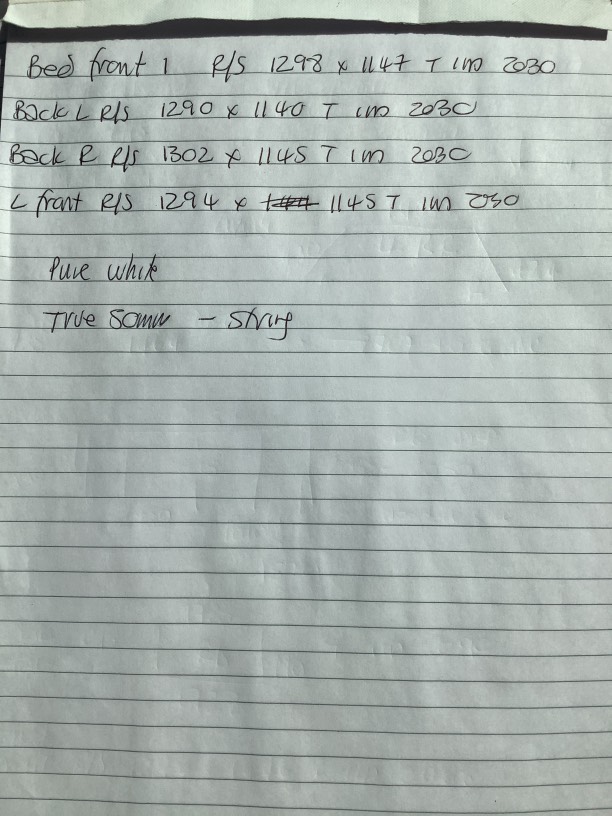 Bed front 1 R/S 1298 x 1147 T im 2030
Back L R/S 1290 x 1140 T im 2030
Back R R/S 1302 x 1145 T im 2030
L front R/S 1294 x 1145 T im 2030
Pure white
True 50mm - String